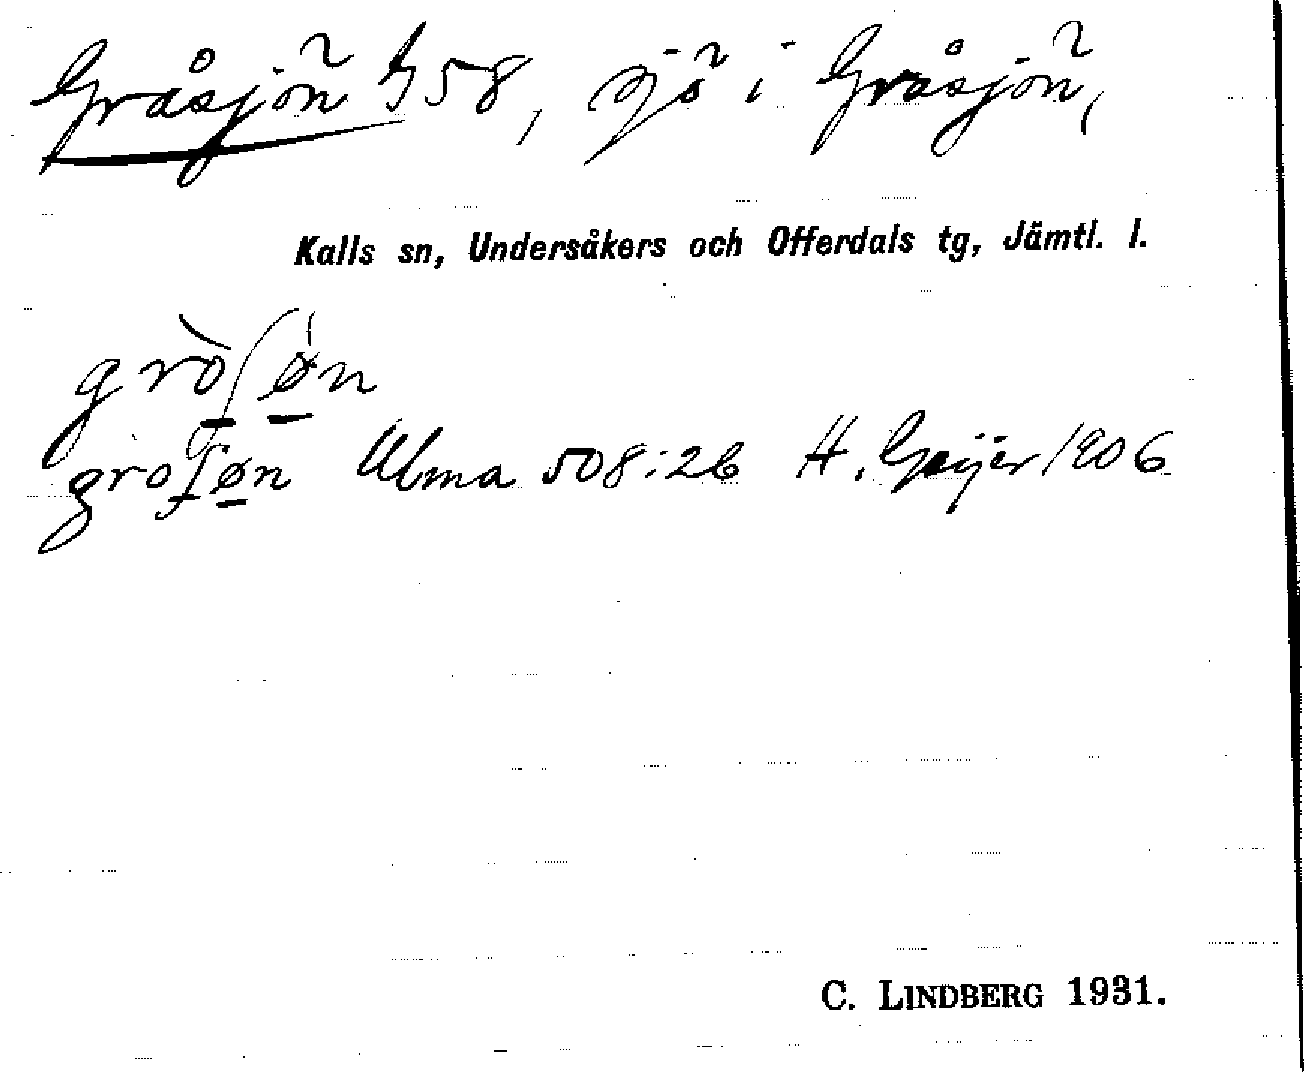 Gråsjön G58, sjö i Gråsjön,
Kalls sn, Undersåkers och Offerdals tg, Jämtl. l.
gròʃøn
groʃøn Ulma 508:26 H. Geijer 1906
C. LINDBERG 1931.